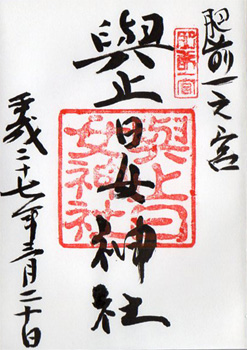 肥前一之宮
肥前一宮
與止日女神社
與止日
女神社
平成二十七年三月二十日